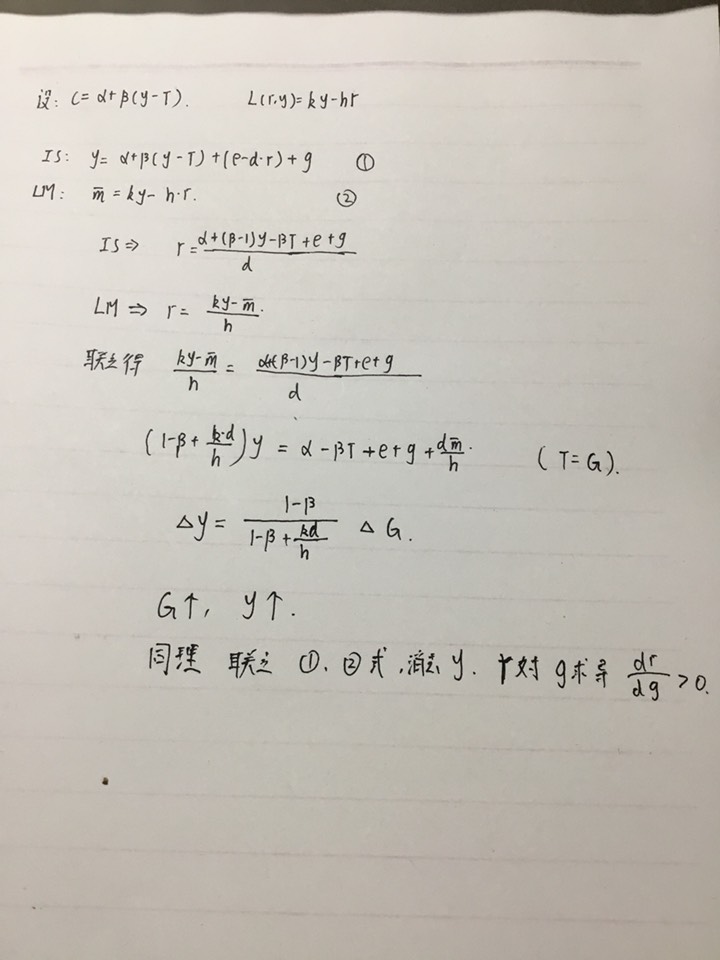 设: C = α+β(y-T). L(r,y)=ky-hr
IS: y= α+β(y-T)+(e-d·r)+g ①
LM: m̄ = ky- h·r. ②
IS⇒ r = (α+(β-1)y-βT+e+g)/d
LM ⇒ r = (ky-m̄)/h.
联立得 (ky-m̄)/h = (α+(β-1)y-βT+e+g)/d
(1-β+k·d/h)y = α-βT+e+g+dm̄/h. (T=G).
Δy = (1-β)/(1-β+kd/h) ΔG.
G↑, y↑.
同理 联立 ①、②式,消去y. r对g求导 dr/dg >0.